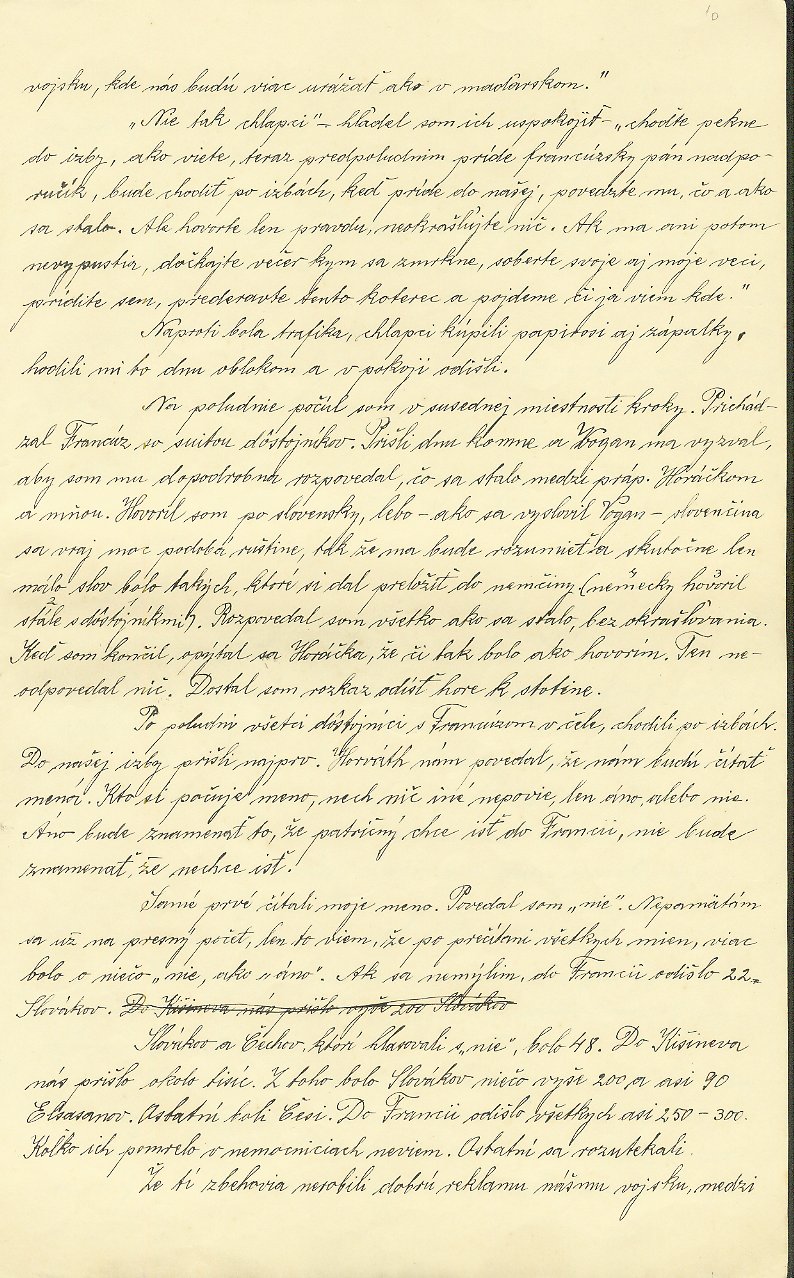 10
vojsku, kde nás budú viac urážať ako v maďarskom."
„Nie tak chlapci" – hľadel som ich uspokojiť – „choďte pekne
do izby, ako viete, teraz predpoludním príde francúzsky pán nadpo-
ručík, bude chodiť po izbách, keď príde do našej, povedzte mu, čo a ako
sa stalo. Ale hovorte len pravdu, neokrašľujte nič. Ak ma ani potom
nevypustia, dočkajte večer kym sa zmrkne, soberte svoje aj moje veci,
prídite sem, prederavte tento koterec a pojdeme či ja viem kde."
Naproti bola trafika, chlapci kúpili papirosi aj zápalky,
hodili mi to dnu oblokom a v pokoji odišli.
Na poludnie počul som v susednej miestnosti kroky. Prichád-
zal Francúz so suitou dôstojníkov. Prišli dnu ko mne a Vogan ma vyzval,
aby som mu dopodrobna rozpovedal, čo sa stalo medzi práp. Horáčkom
a mňou. Hovoril som po slovensky, lebo – ako sa vyslovil Vogan – slovenčina
sa vraj moc podobá ruštine, tak že ma bude rozumieť a skutočne len
málo slov bolo takých, ktoré si dal preložiť do nemčiny (nemecky hovoril
stále s dôstojníkmi). Rozpovedal som všetko ako sa stalo, bez okrašľovania.
Keď som končil, opýtal sa Horáčka, že či tak bolo ako hovorím. Ten ne-
odpovedal nič. Dostal som rozkaz odísť hore k stotine.
Po poludní všetci dôstojníci s Francúzom v čele, chodili po izbách.
Do našej izby prišli najprv. Horváth nám povedal, že nám budú čítať
mená. Kto si počuje meno, nech nič iné nepovie, len áno, alebo nie.
Áno bude znamenať to, že patričný chce isť do Francii, nie bude
znamenať, že nechce isť.
Samé prvé čítali moje meno. Povedal som „nie". Nepamätám
sa už na presný počet, len to viem, že po prečítaní všetkých mien, viac
bolo o niečo „nie, ako „áno". Ak sa nemýlim, do Francii odišlo 22
Slovákov. Do Kišineva nás prišlo vyše 200 Slovákov
Slovákov a Čechov, ktorí hlasovali s „nie", bolo 48. Do Kišineva
nás prišlo okolo tisíc. Z toho bolo Slovákov niečo vyše 200 a asi 90
Elsasanov. Ostatní boli Česi. Do Francii odišlo všetkých asi 250 – 300.
Koľko ich pomrelo v nemocniciach neviem. Ostatní sa rozutekali.
Že tí zbehovia nerobili dobrú reklamu nášmu vojsku, medzi